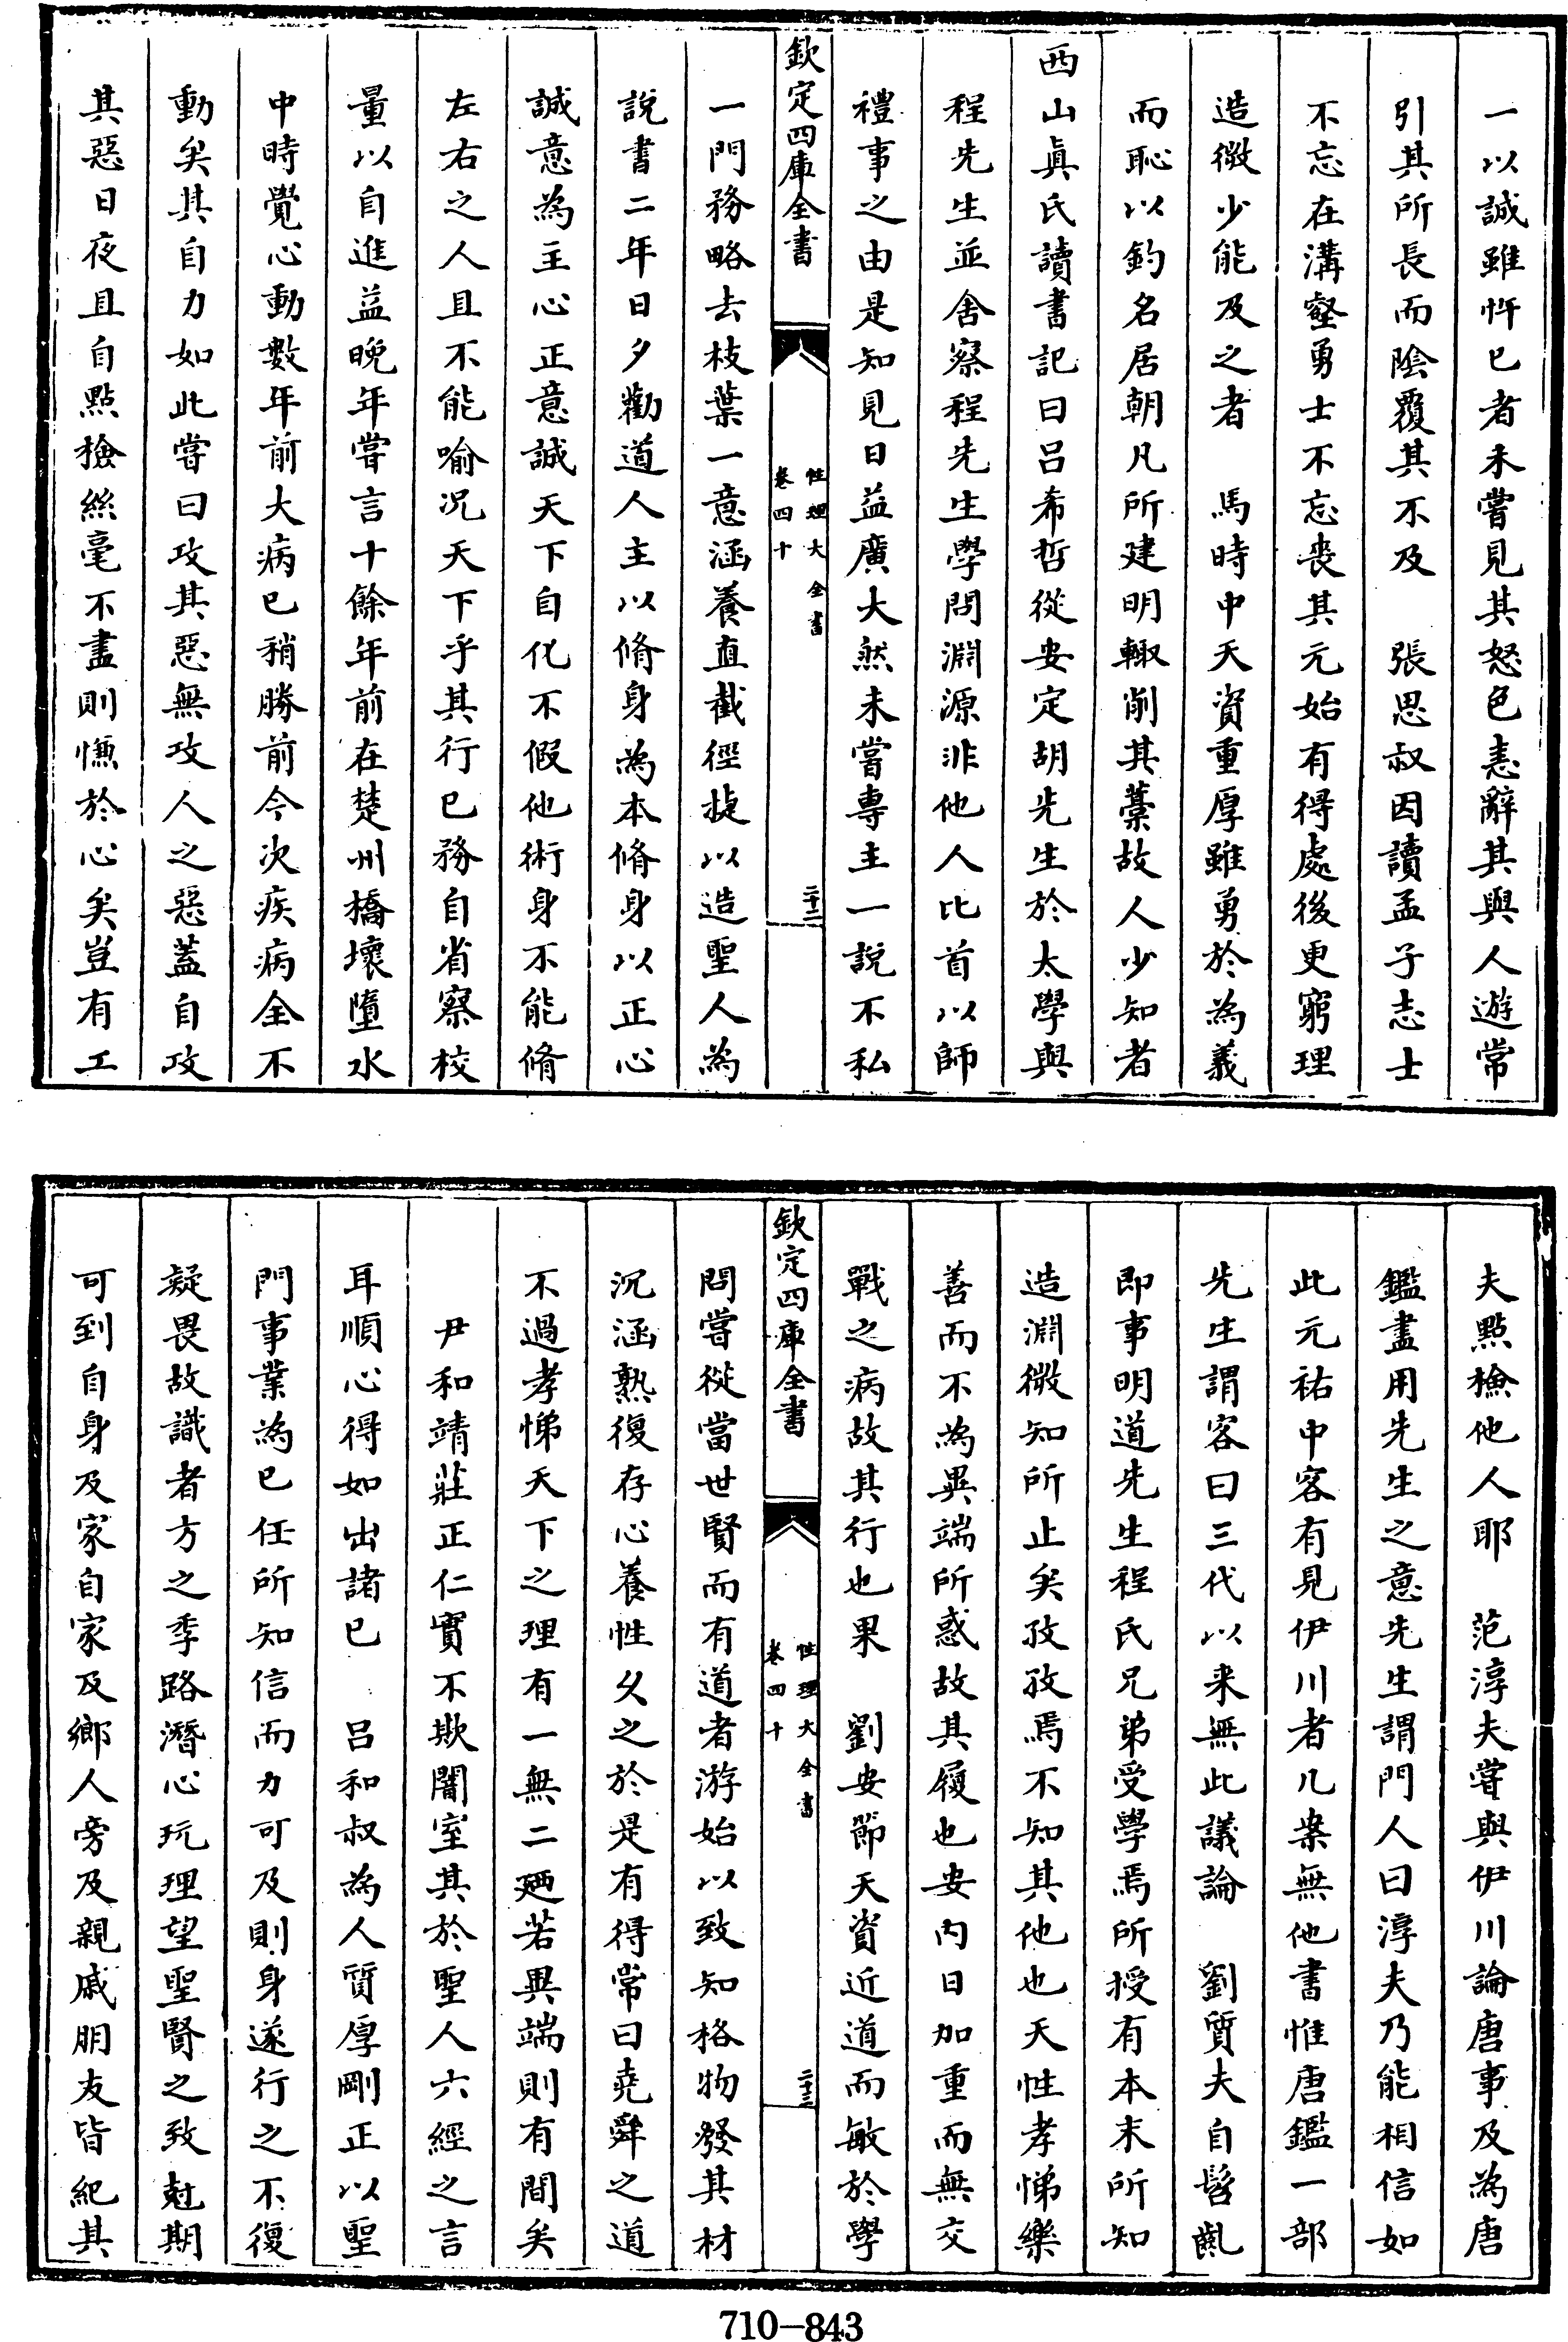 一以誠雖忤已者未嘗見其怒色恚辭其與人遊常
引其所長而陰覆其不及　張思叔因讀孟子志士
不忘在溝壑勇士不忘喪其元始有得處後更窮理
造微少能及之者　馬時中天資重厚雖勇於為義
而恥以釣名居朝凡所建明輙削其藁故人少知者
西山真氏讀書記曰呂希哲從安定胡先生於太學與
程先生並舍察程先生學問淵源非他人比首以師
禮事之由是知見日益廣大然未嘗專主一說不私
欽定四庫全書　性理大全書　卷四十　二十二
一門務略去枝葉一意涵養直截徑捷以造聖人為
說書二年日夕勸道人主以脩身為本脩身以正心
誠意為主心正意誠天下自化不假他術身不能脩
左右之人且不能喻况天下乎其行已務自省察校
量以自進益晚年嘗言十餘年前在楚州橋壞墮水
中時覺心動數年前大病已稍勝前今次疾病全不
動矣其自力如此嘗曰攻其惡無攻人之惡蓋自攻
其惡日夜且自點檢絲毫不盡則慊於心矣豈有工
夫點檢他人耶　范淳夫嘗與伊川論唐事及為唐
鑑盡用先生之意先生謂門人曰淳夫乃能相信如
此元祐中客有見伊川者几案無他書惟唐鑑一部
先生謂客曰三代以来無此議論　劉質夫自髫齓
即事明道先生程氏兄弟受學焉所授有本末所知
造淵微知所止矣孜孜焉不知其他也天性孝悌樂
善而不為異端所惑故其履也安内日加重而無交
戰之病故其行也果　劉安節天資近道而敏於學
欽定四庫全書　性理大全書　卷四十　二十三
問嘗從當世賢而有道者游始以致知格物發其材
沉涵熟復存心養性久之於是有得常曰堯舜之道
不過孝悌天下之理有一無二廼若異端則有間矣
尹和靖莊正仁實不欺闇室其於聖人六經之言
耳順心得如出諸已　呂和叔為人質厚剛正以聖
門事業為已任所知信而力可及則身遂行之不復
疑畏故識者方之季路潛心玩理望聖賢之致尅期
可到自身及家自家及鄉人旁及親戚朋友皆紀其
710-843